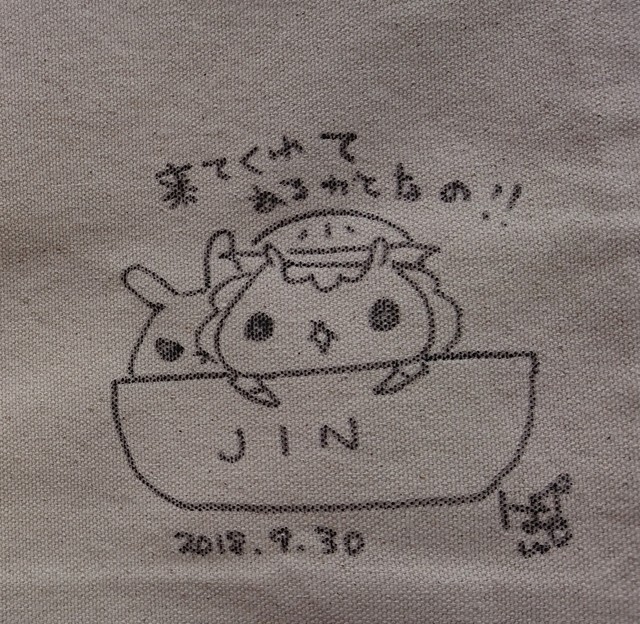 来てくれて
ありがとなの!!
JIN
2018.9.30